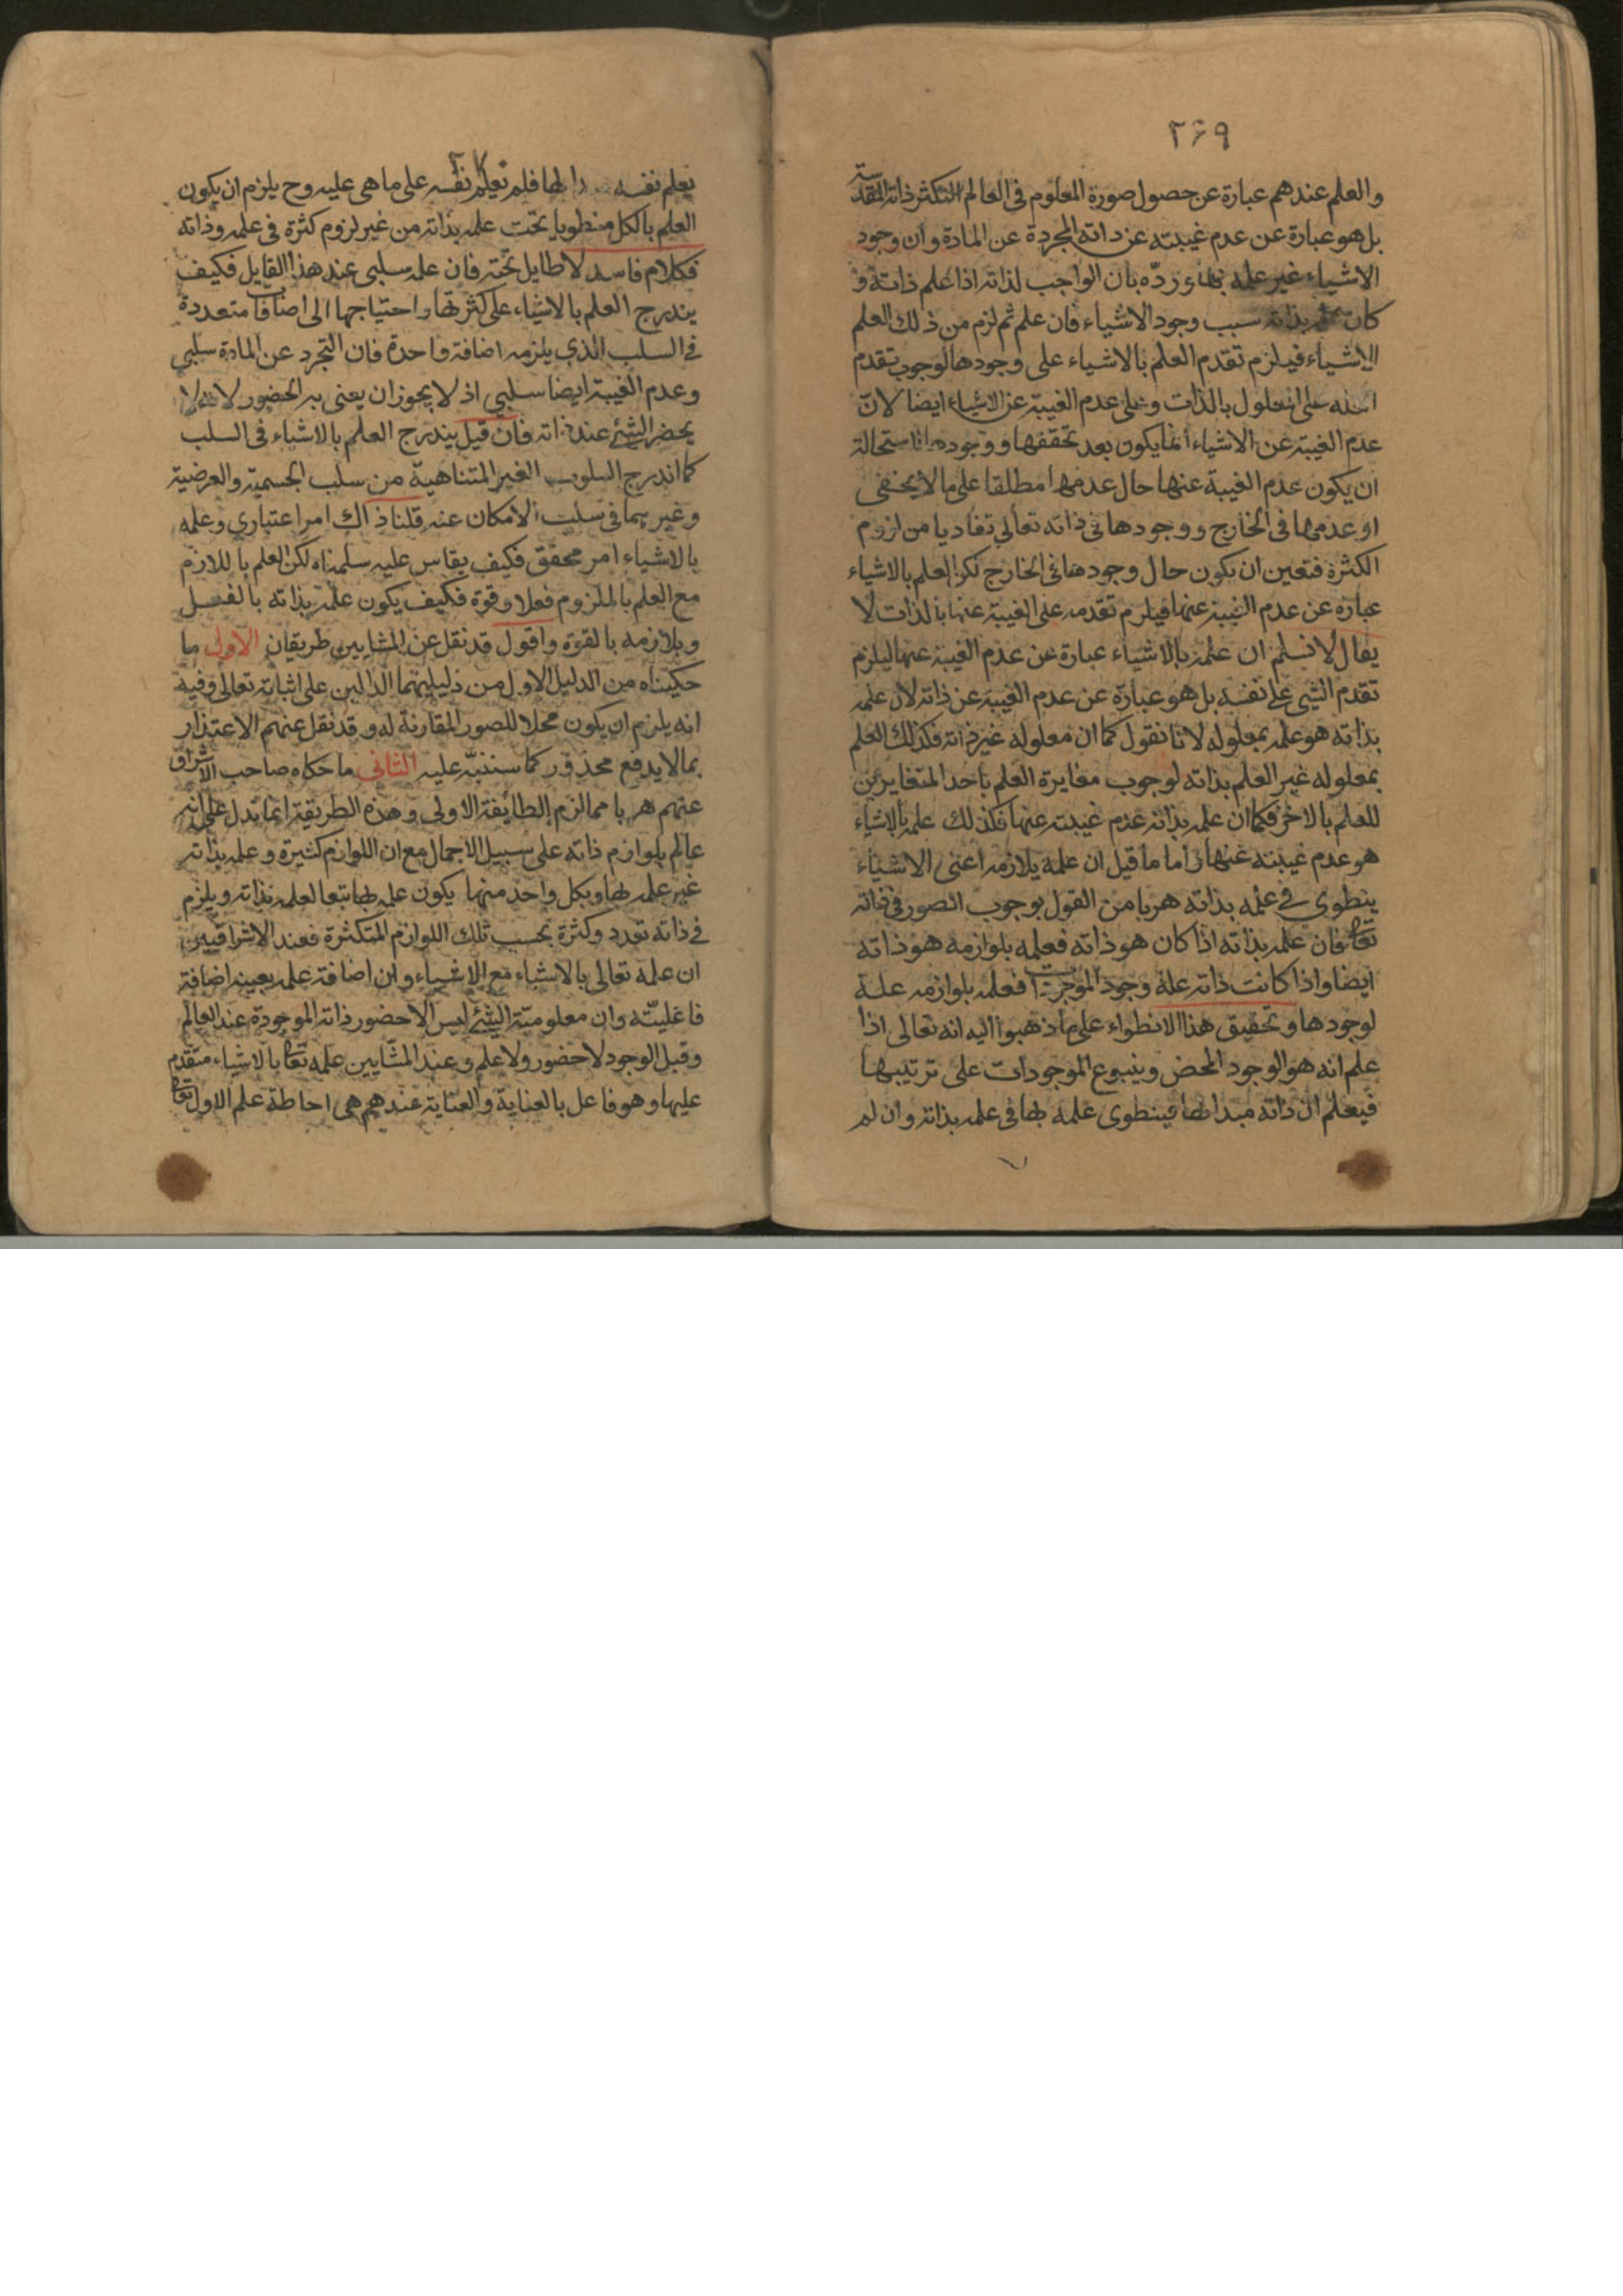 ٢٦٩
والعلم عندهم عبارة عن حصول صورة المعلوم في العالم لتكثر ذاته المقدسة
بل هو عبارة عن عدم غيبته عن ذاته المجردة عن المادة وان وجود
الاشياء غير علمه بها ورده بان الواجب لذاته اذا علم ذاته و
كان علمه بذاته سبب وجود الاشياء فان علم ثم لزم من ذلك العلم
الاشياء فيلزم تقدم العلم بالاشياء على وجودها لوجوب تقدم
العلة على المعلول بالذات وعلى عدم الغيبة عن الاشياء ايضا لان
عدم الغيبة عن الاشياء انما يكون بعد تحققها ووجودها لاستحالة
ان يكون عدم الغيبة عنها حال عدمها مطلقا على ما لا يخفى
او عدمها في الخارج ووجودها في ذاته تعالى تفاديا من لزوم
الكثرة فتعين ان يكون حال وجودها في الخارج لكن العلم بالاشياء
عبارة عن عدم الغيبة عنها فيلزم تقدمه على الغيبة عنها بالذات لا
يقال لا نسلم ان علمه بالاشياء عبارة عن عدم الغيبة عنها ليلزم
تقدم الشي على نفسه بل هو عبارة عن عدم الغيبة عن ذاته لان علمه
بذاته هو علمه بمعلوله لانا نقول كما ان معلوله غير ذاته فكذلك العلم
بمعلوله غير العلم بذاته لوجوب مغايرة العلم باحد المتغايرين
للعلم بالاخر فكما ان علمه بذاته عدم غيبته عنها فكذلك علمه بالاشياء
هو عدم غيبته عنها واما ما قيل ان علمه بلازمه اعنى الاشياء
ينطوي في علمه بذاته هربا من القول بوجوب الصور في ذاته
تعالى فان علمه بذاته اذا كان هو ذاته فعلمه بلوازمه هو ذاته
ايضا واذا كانت ذاته علة وجود الموجودات فعلمه بلوازمه علة
لوجودها وتحقيق هذا الانطواء على ما ذهبوا اليه انه تعالى اذا
علم انه هو الوجود المحض وينبوع الموجودات على ترتيبها
فيعلم ان ذاته مبدا لها فينطوى علمه بها في علمه بذاته وان لم
يعلم نفسه مبدا لها فلم يعلم نفسه على ما هي عليه وح يلزم ان يكون
العلم بالكل منطويا تحت علمه بذاته من غير لزوم كثرة في علمه وذاته
فكلام فاسد لا طايل تحته فان علمه سلبي عند هذا القايل فكيف
يندرج العلم بالاشياء على كثرتها واحتياجها الى اضافات متعددة
في السلب الذي يلزمه اضافة واحدة فان التجرد عن المادة سلبي
وعدم الغيبة ايضا سلبي اذ لا يجوز ان يعنى به الحضور لانه لا
يحضر الشئ عند ذاته فان قيل يندرج العلم بالاشياء في السلب
كما اندرج السلوب الغير المتناهية من سلب الجسمية والعرضية
وغيرهما في سلب الامكان عنه قلنا ذاك امر اعتباري وعلمه
بالاشياء امر محقق فكيف يقاس عليه سلمناه لكن العلم باللازم
مع العلم بالملزوم فعلا وقوة فكيف يكون علمه بذاته بالفعل
وبلازمه بالقوة واقول قد نقل عن المشايين طريقان الاول ما
حكيناه من الدليل الاول من دليليهما الدالين على اثباته تعالى وفيه
انه يلزم ان يكون محلا للصور المقارنة له وقد نقل عنهم الاعتذار
بما لا يدفع محذور كما سننبه عليه الثاني ما حكاه صاحب الاشراق
عنهم هربا مما لزم الطايفة الاولى وهذه الطريقة انما تدل على انه
عالم بلوازم ذاته على سبيل الاجمال مع ان اللوازم كثيرة وعلمه بذاته
غير علمه بها وبكل واحد منها يكون علمه بها تبعا لعلمه بذاته ويلزم
في ذاته تعدد وكثرة بحسب تلك اللوازم المتكثرة فعند الاشراقيين
ان علمه تعالى بالاشياء مع الاشياء وان اضافة علمه بعينه اضافة
فاعليته وان معلومية الشئ ليس الا حضور ذاته الموجودة عند العالم
وقبل الوجود لا حضور ولا علم وعند المشايين علمه تعالى بالاشياء متقدم
عليها وهو فاعل بالعناية والعناية عندهم هي احاطة علم الاول تعالى